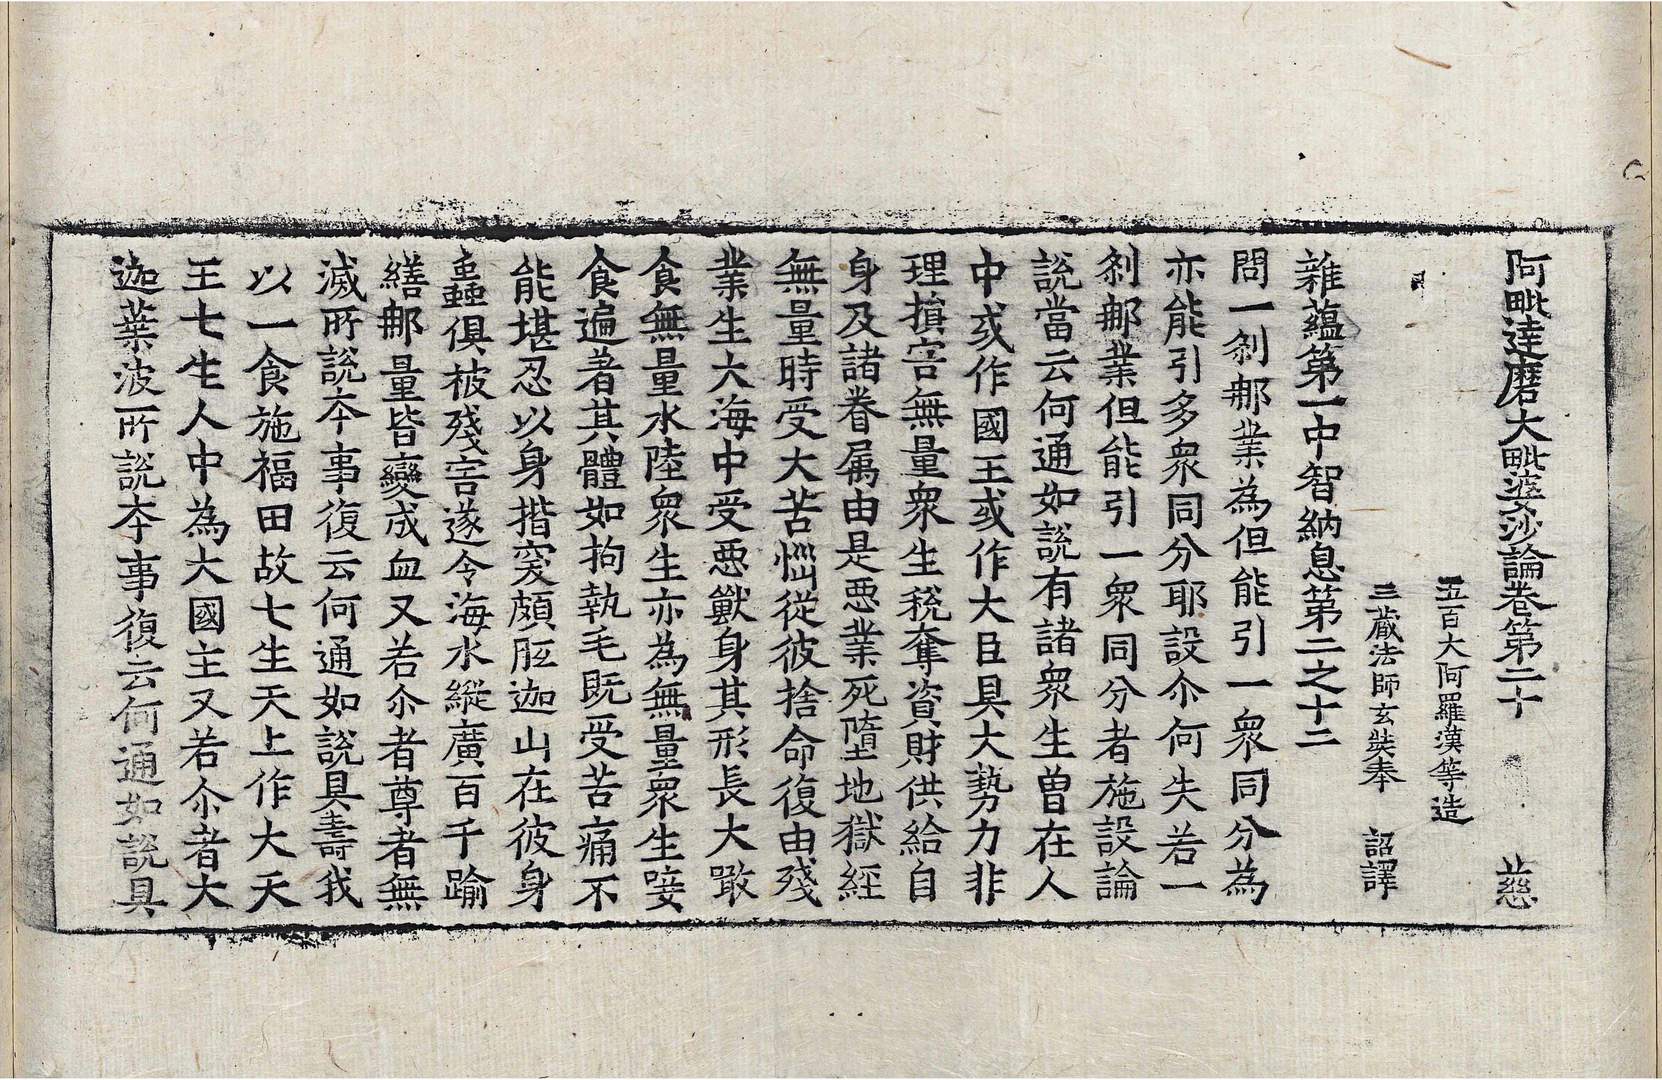 阿毗達磨大毗婆沙論卷第二十 慈
五百大阿羅漢等造
三藏法師玄奘奉 詔譯
雜蘊第一中智納息第二之十二
問一刹那業為但能引一衆同分為
亦能引多衆同分耶設尒何失若一
刹那業但能引一衆同分者施設論
說當云何通如說有諸衆生曾在人
中或作國王或作大臣具大勢力非
理損害無量衆生稅奪資財供給自
身及諸眷属由是惡業死墮地獄經
無量時受大苦惱從彼捨命復由殘
業生大海中受惡獸身其形長大噉
食無量水陸衆生亦為無量衆生唼
食遍著其體如拘執毛旣受苦痛不
能堪忍以身揩突頗胝迦山在彼身
蟲俱被殘害遂令海水縱廣百千踰
繕那量皆變成血又若尒者尊者無
滅所說本事復云何通如說具壽我
以一食施福田故七生天上作大天
王七生人中為大國主又若尒者大
迦葉波所說本事復云何通如說具